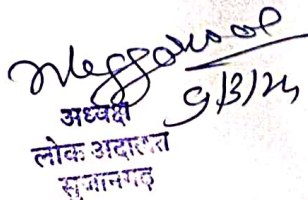 9/3/24
अध्यक्ष
लोक अदालत
सुजानगढ़